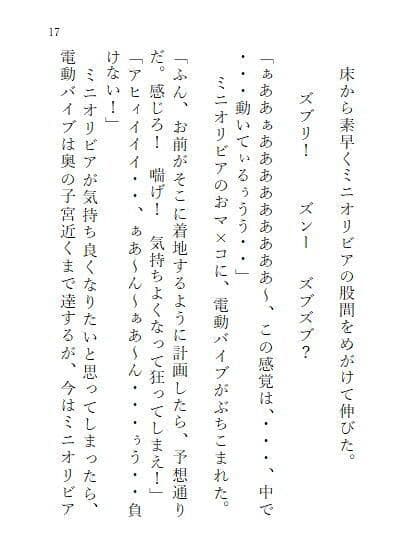 17
床から素早くミニオリビアの股間をめがけて伸びた。
ズブリ！　ズンー　ズブズブ？
「ぁああぁああああああああ～、この感覚は、・・・、中で
・・・動いてぃるぅうう・・」
ミニオリビアのおマ×コに、電動バイブがぶちこまれた。
「ふん、お前がそこに着地するように計画したら、予想通り
だ。感じろ！　喘げ！　気持ちよくなって狂ってしまえ！」
「アヒィイイイ・・、ぁあ～ん～ぁあ～ん・・・ぅう・・負
けない！」
ミニオリビアが気持ち良くなりたいと思ってしまったら、
電動バイブは奥の子宮近くまで達するが、今はミニオリビア